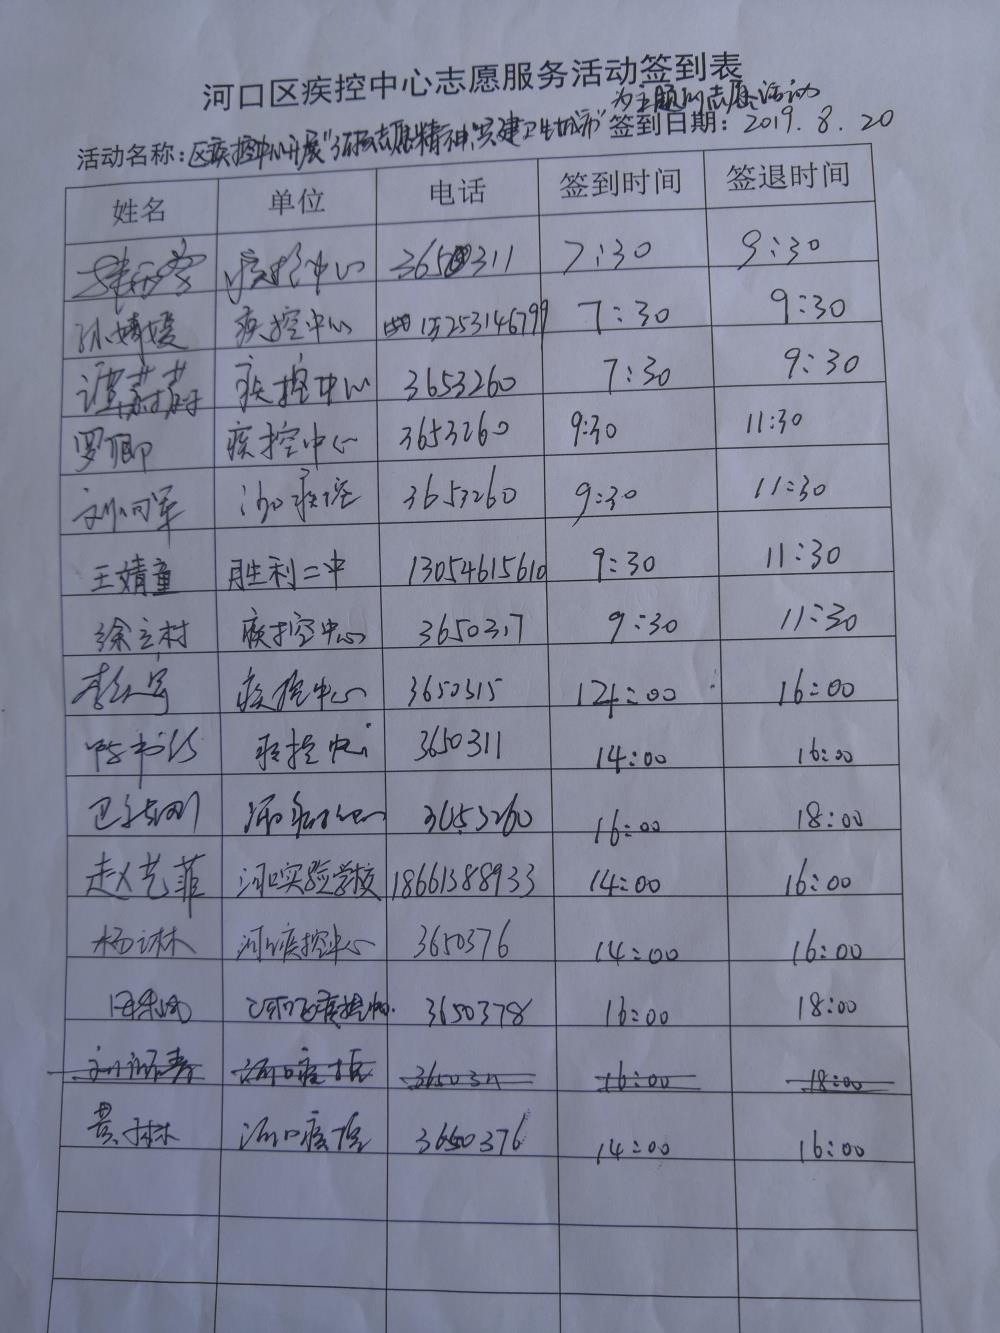 河口区疾控中心志愿服务活动签到表
为主题的志愿活动
活动名称：区疾控中心开展"弘扬志愿精神，共建卫生城市" 签到日期：2019.8.20
姓名 单位 电话 签到时间 签退时间
疾控中心 3650311 7:30 9:30
孙婧媛 疾控中心 15253146799 7:30 9:30
谭莉莉 疾控中心 3653260 7:30 9:30
罗卿 疾控中心 3653260 9:30 11:30
刘向军 河口疾控 3653260 9:30 11:30
王婧童 胜利二中 13054615610 9:30 11:30
徐立村 疾控中心 3650317 9:30 11:30
疾控中心 3650315 14:00 16:00
陈书 疾控中心 3650311 14:00 16:00
3653260 16:00 18:00
赵艺菲 河口实验学校 18661388933 14:00 16:00
杨林 河口疾控中心 3650376 14:00 16:00
河口区疾控中心 3650378 16:00 18:00
河口疾控 3650311 16:00 18:00
黄子林 河口疾控 3650376 14:00 16:00